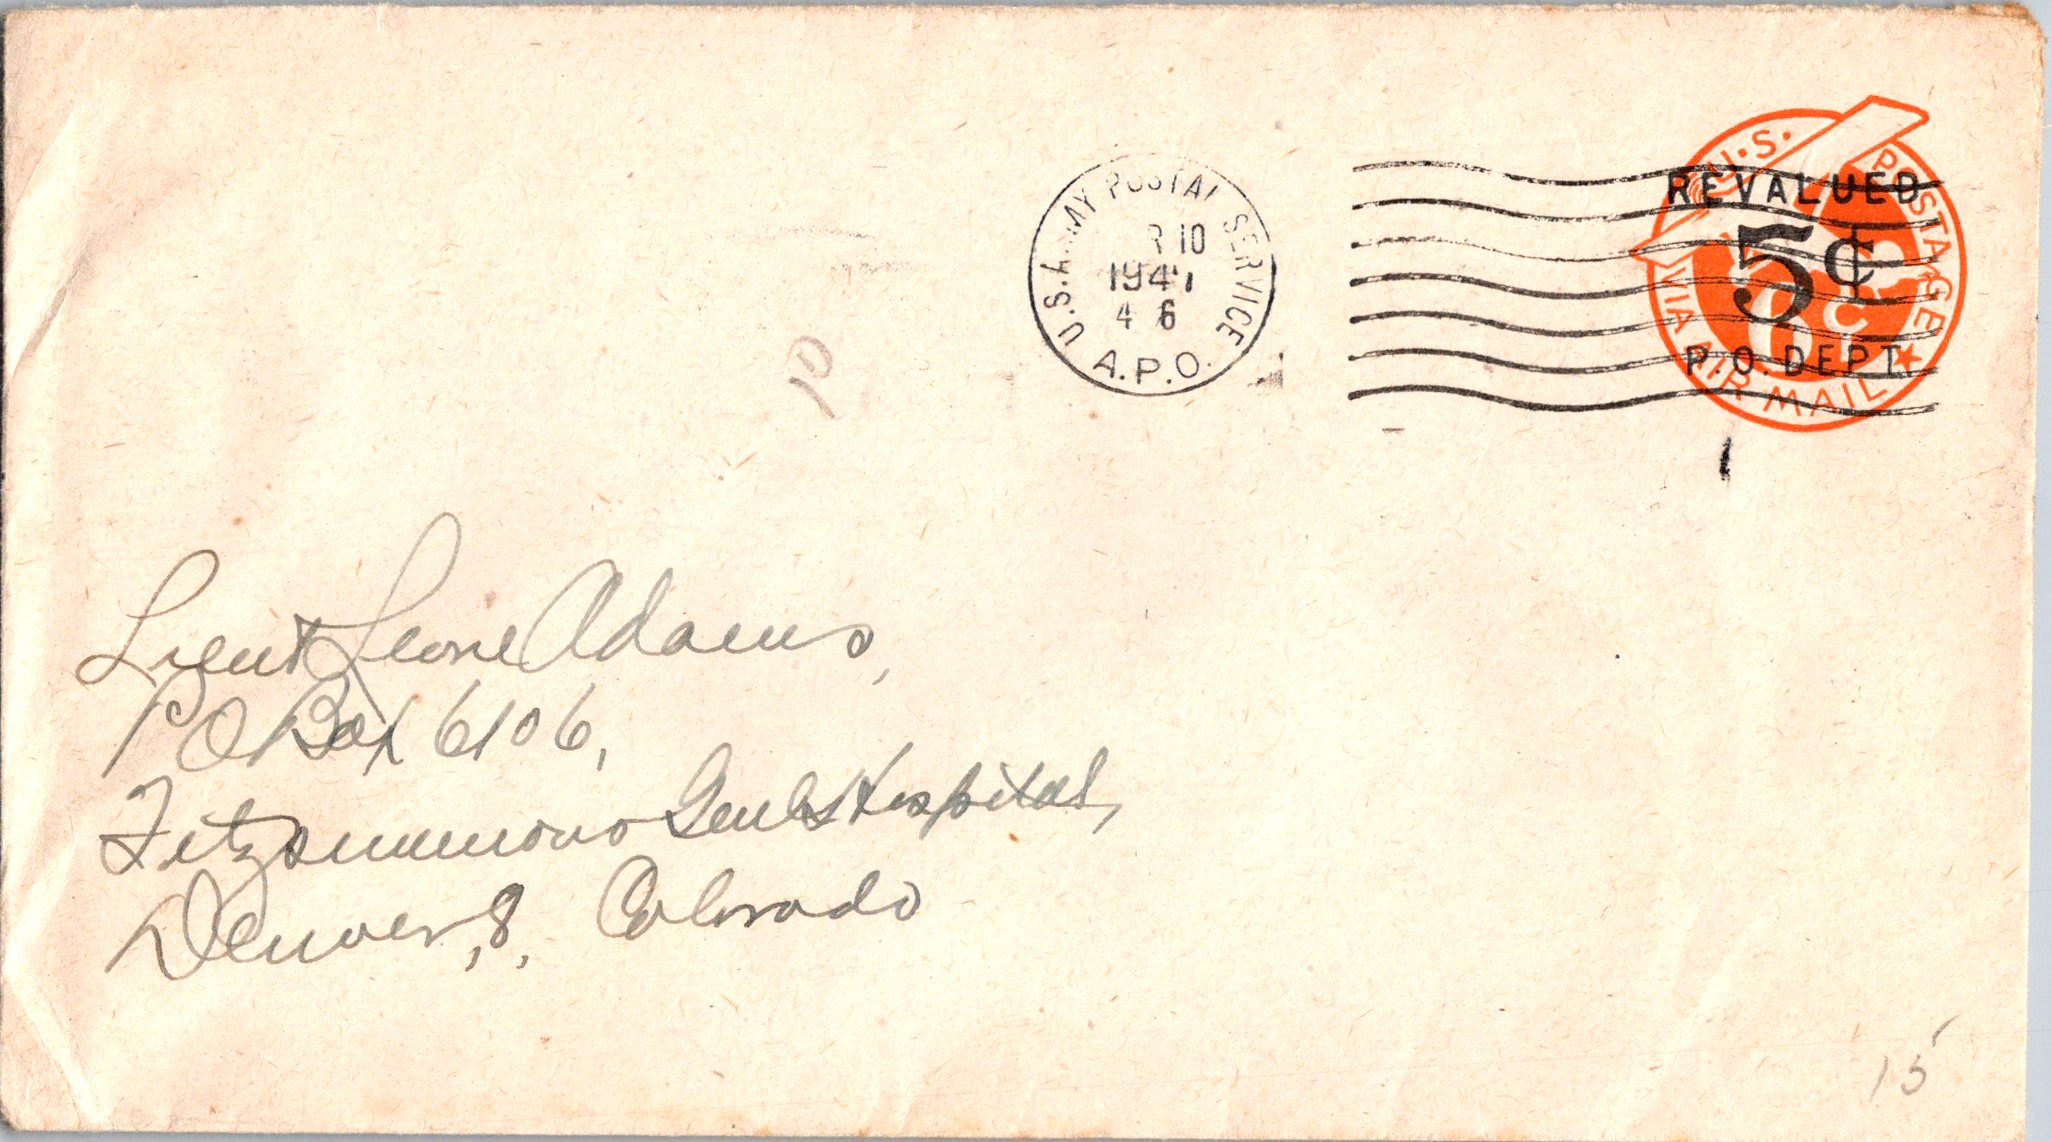 U.S. ARMY POSTAL SERVICE
R 10
1947
4 6
A.P.O.
U.S. POSTAGE
REVALUED
5¢
6c
P.O. DEPT.
VIA AIR MAIL
10
Lieut Leone Adams,
PO Box 6106,
Fitzsimmons Genl Hospital,
Denver, 8, Colorado
15